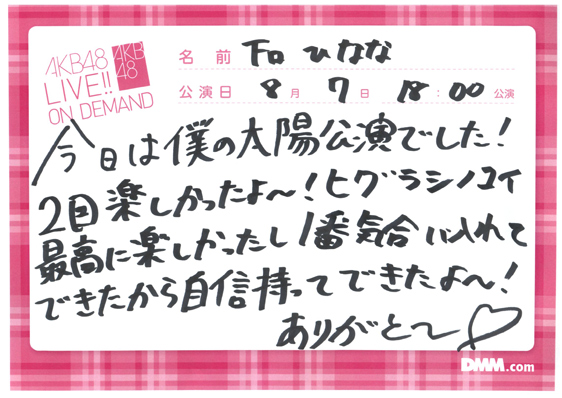 AKB48
LIVE!!
ON DEMAND
AKB
48
名前 下口ひなな
公演日 8月7日 18:00公演
今日は僕の太陽公演でした!
2回目楽しかったよ〜!ヒグラシノコイ
最高に楽しかったし1番気合い入れて
できたから自信持ってできたよ〜!
ありがと〜♡
DMM.com